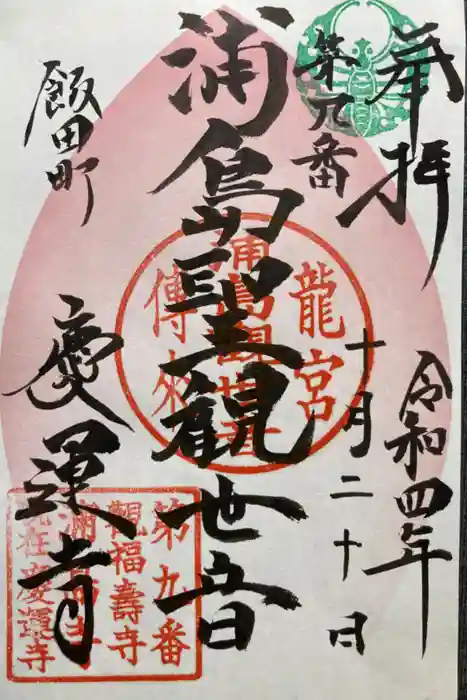 奉拝
令和四年
十月二十日
第九番
浦島聖観世音
飯田町
慶運寺
龍宮
浦島観世音
傳來
第九番
觀福壽寺
浦島寺
現在慶運寺